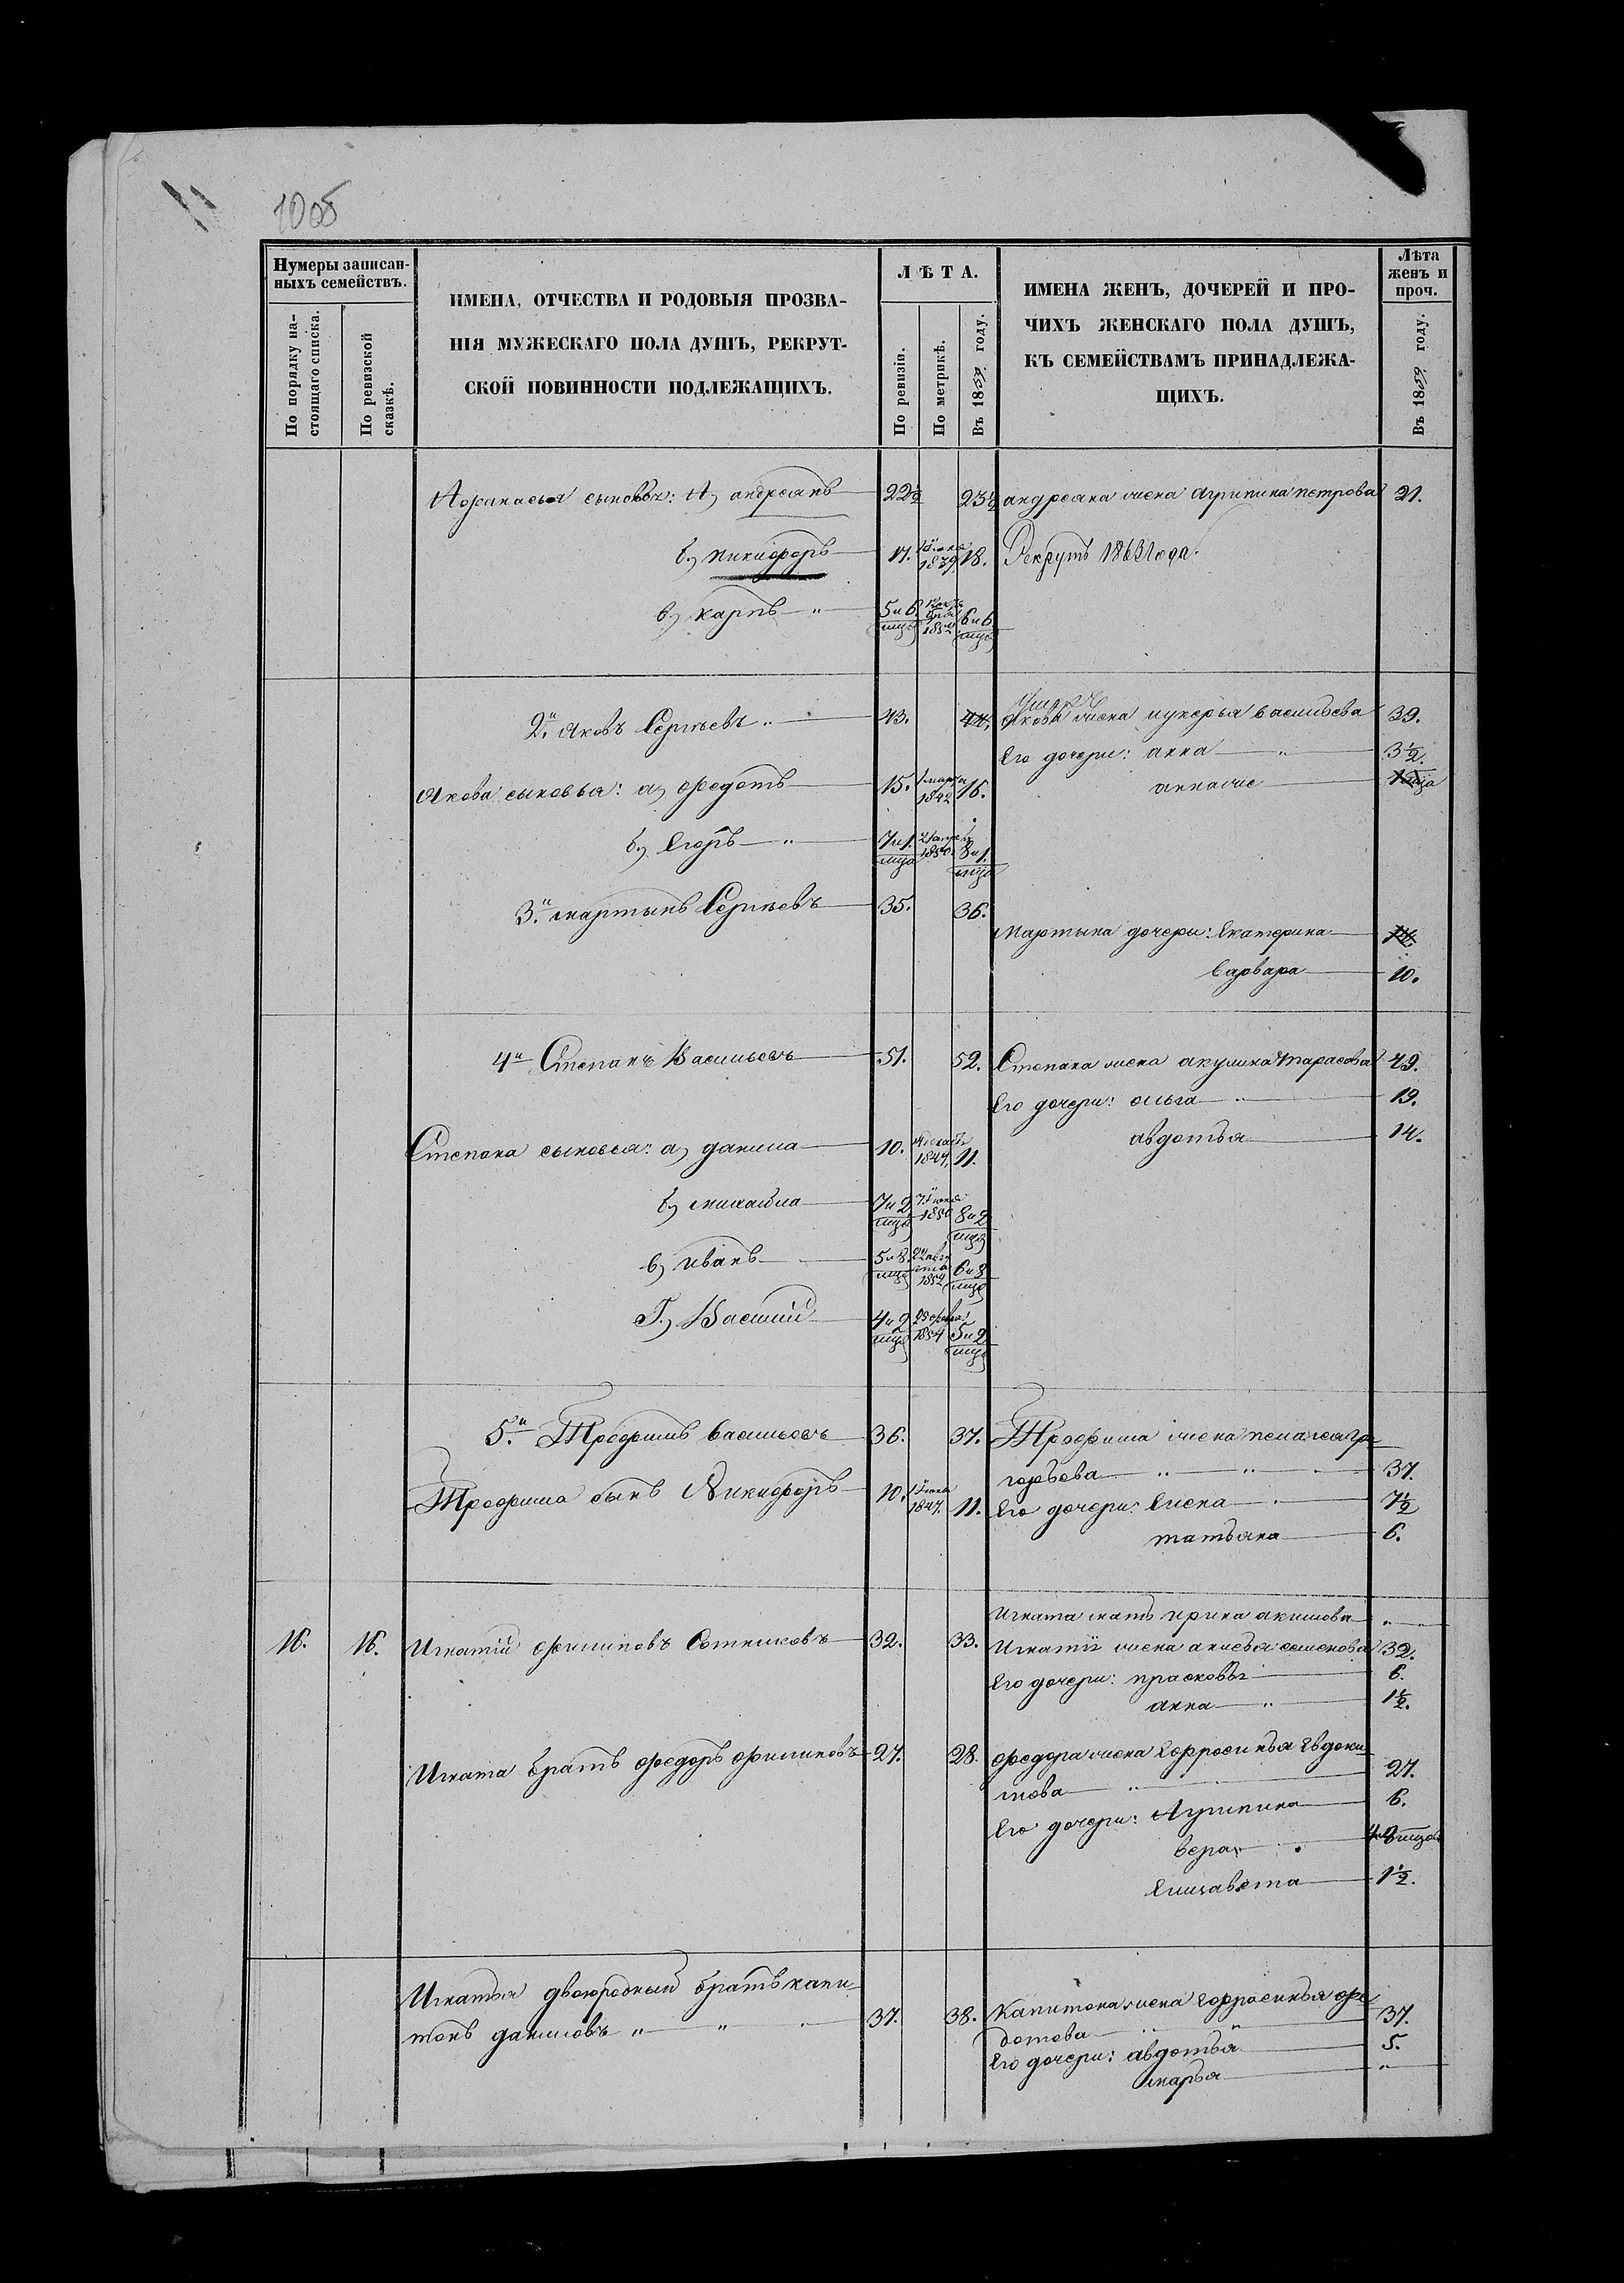 11
1005
Нумеры записан-
ныхъ семействъ.
По порядку на-
стоящаго списка.
По ревизской
сказкѣ.
ИМЕНА, ОТЧЕСТВА И РОДОВЫЯ ПРОЗВА-
НІЯ МУЖЕСКАГО ПОЛА ДУШЪ, РЕКРУТ-
СКОЙ ПОВИННОСТИ ПОДЛЕЖАЩИХЪ.
ЛѢТА.
По ревизіи.
По метрикѣ.
Въ 1859 году.
ИМЕНА ЖЕНЪ, ДОЧЕРЕЙ И ПРО-
ЧИХЪ ЖЕНСКАГО ПОЛА ДУШЪ,
КЪ СЕМЕЙСТВАМЪ ПРИНАДЛЕЖА-
ЩИХЪ.
Лѣта
женъ и
проч.
Въ 1859 году.
Афанасья сыновья: А, андреянъ 22½ 23½ андреяна жена Агрипина петрова 21.
б, никифоръ 17. 1839 18. Рекрутъ 1863 года.
в, карпъ " 5 и 6 мцо 1852 6 и 6 мцо
2й яковъ Сергѣевъ " 43. 44. якова жена лукерья васильева 39.
Его дочери: анна " 3½.
Якова сыновья: а, федотъ 15. 1 марта 1842 16.
анна же
б, Егоръ " 7 и 1. мцо 21 апрѣ 1850 8 и 1. мцо
3й мартынъ Сергѣевъ 35. 36.
Мартына дочери: Екатерина
варвара 10.
4й Степанъ Васильевъ 51. 52. Степана жена акулина тарасова 49.
Его дочери: ольга " 19.
Степана сыновья: а, данила 10. 1847. 11. авдотья 14.
б, михайла 7 и 2 мцо 7 іюня 1850 8 и 2 мцо
в, иванъ 5 и 8. мцо 1852 6 и 8 мцо
Г, Василій 4 и 2 мцо 1854 5 и 2 мцо
5й Трофимъ васильевъ 36. 37. Трофима жена пелагея гри
горьева " " 37.
Трофима сынъ Никифоръ 10. 1847. 11. Его дочери: Елена 7½
татьяна 6.
Игната мать ирина акимова "
16. 16. Игнатій филиповъ Сотниковъ 32. 33. Игнатіи жена анисья семенова 32.
Его дочери: прасковья 6.
анна " 1½.
Игната братъ федоръ филиповъ 27. 28. федора жена Ефросинья Евдоки
мова " 27.
Его дочери: Агрипина 6.
вера
Елизавета 1½.
Игнатья двоюродный братъ капи
тонъ даниловъ " " 37. 38. Капитона жена Ефросинья фе
дотова " " 37.
Его дочери: авдотья 5.
марья "